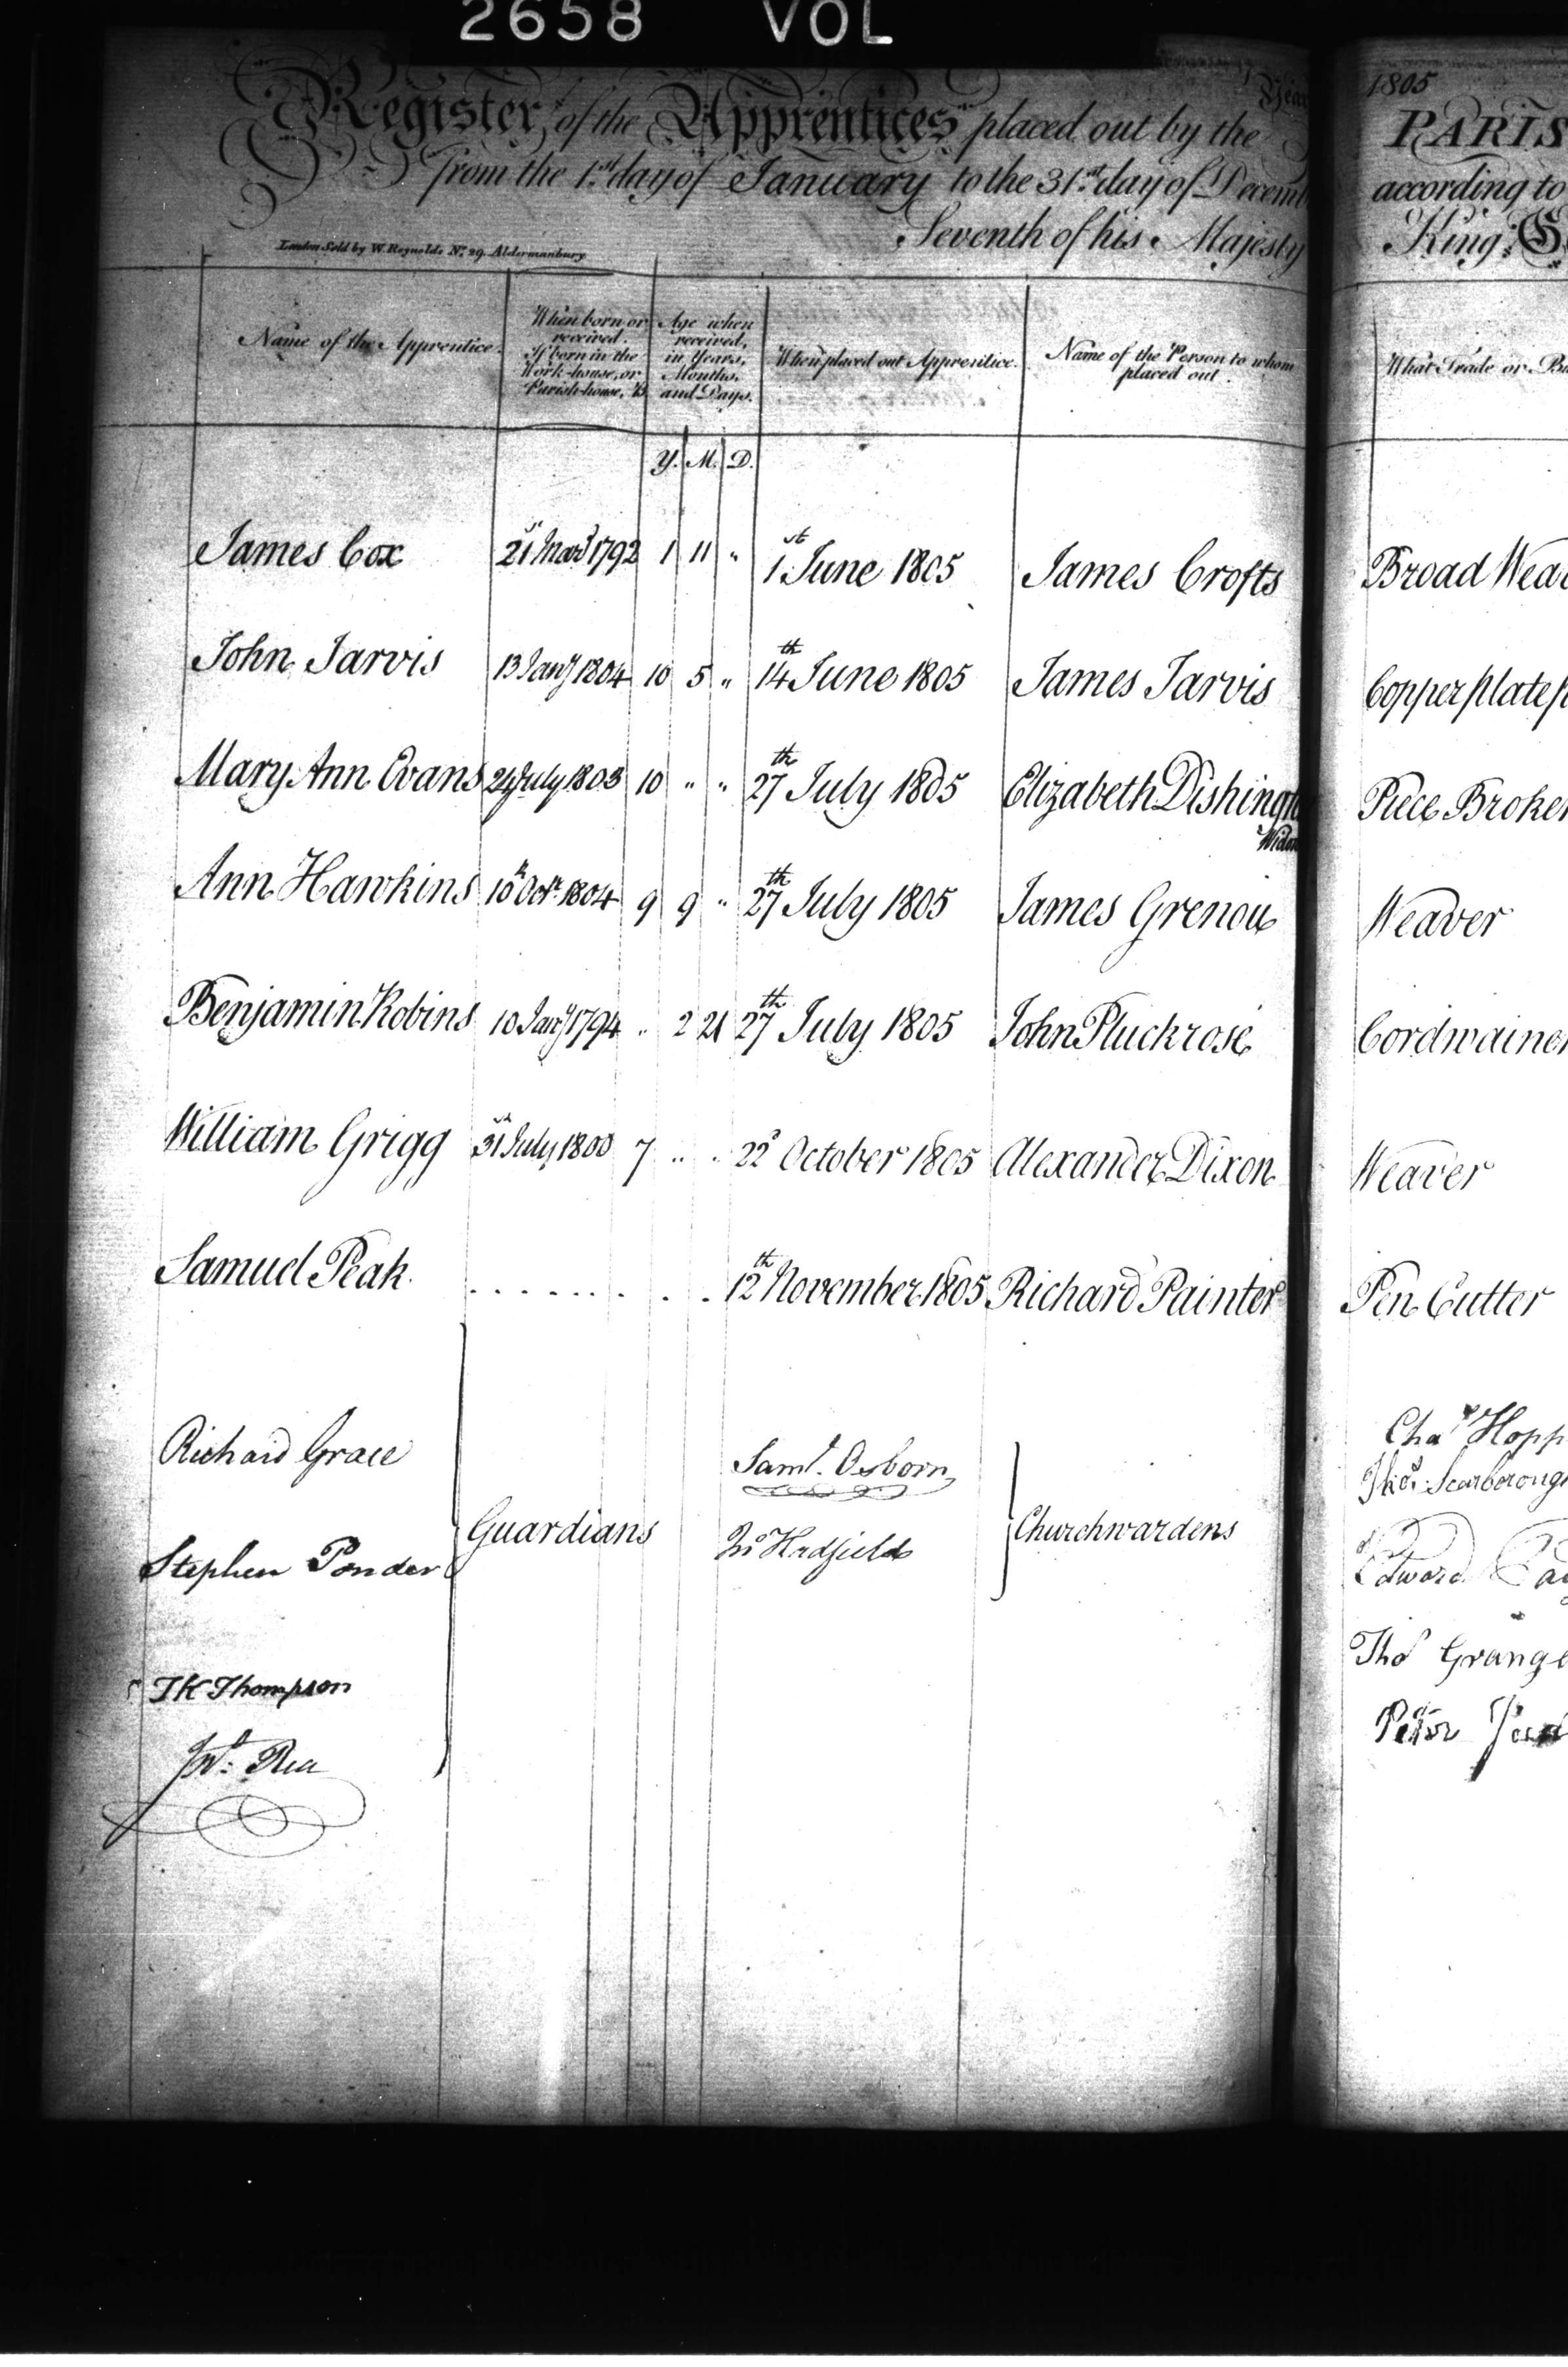 2658 VOL
Year 1805
Register of the Apprentices placed out by the PARIS
from the 1st day of January to the 31st day of Decemb according to
Seventh of his Majesty King G
London Sold by W. Reynolds No. 29. Aldermanbury
Name of the Apprentice. When born or received. If born in the Work-house, or Parish-house, B Age when received, in Years, Months, and Days. When placed out Apprentice. Name of the Person to whom placed out. What Trade or Bu
Y. M. D.
James Cox 21st Mar 1792 1 11 " 1st June 1805 James Crofts Broad Weav
John Jarvis 13 Jany 1804 10 5 " 14th June 1805 James Jarvis Copper plate p
Mary Ann Evans July 1803 10 " " 27th July 1805 Elizabeth Dishingto Piece Broker
Widow
Ann Hawkins 10th Octr 1804 9 9 " 27th July 1805 James Grenou Weaver
Benjamin Robins 10 Jany 1794 " 2 21 27th July 1805 John Pluckrose Cordwainer
William Grigg 31st July 1800 7 " " 22d October 1805 Alexander Dixon Weaver
Samuel Peak 12th November 1805 Richard Painter Pen Cutter
Richard Grace Saml. Osborn Chas Hopp
Thos Scarboroug
Guardians Churchwardens
Stephen Ponder Jno Hadfield Edward
TK Thompson Thos Grange
Peter
Jno. Rea